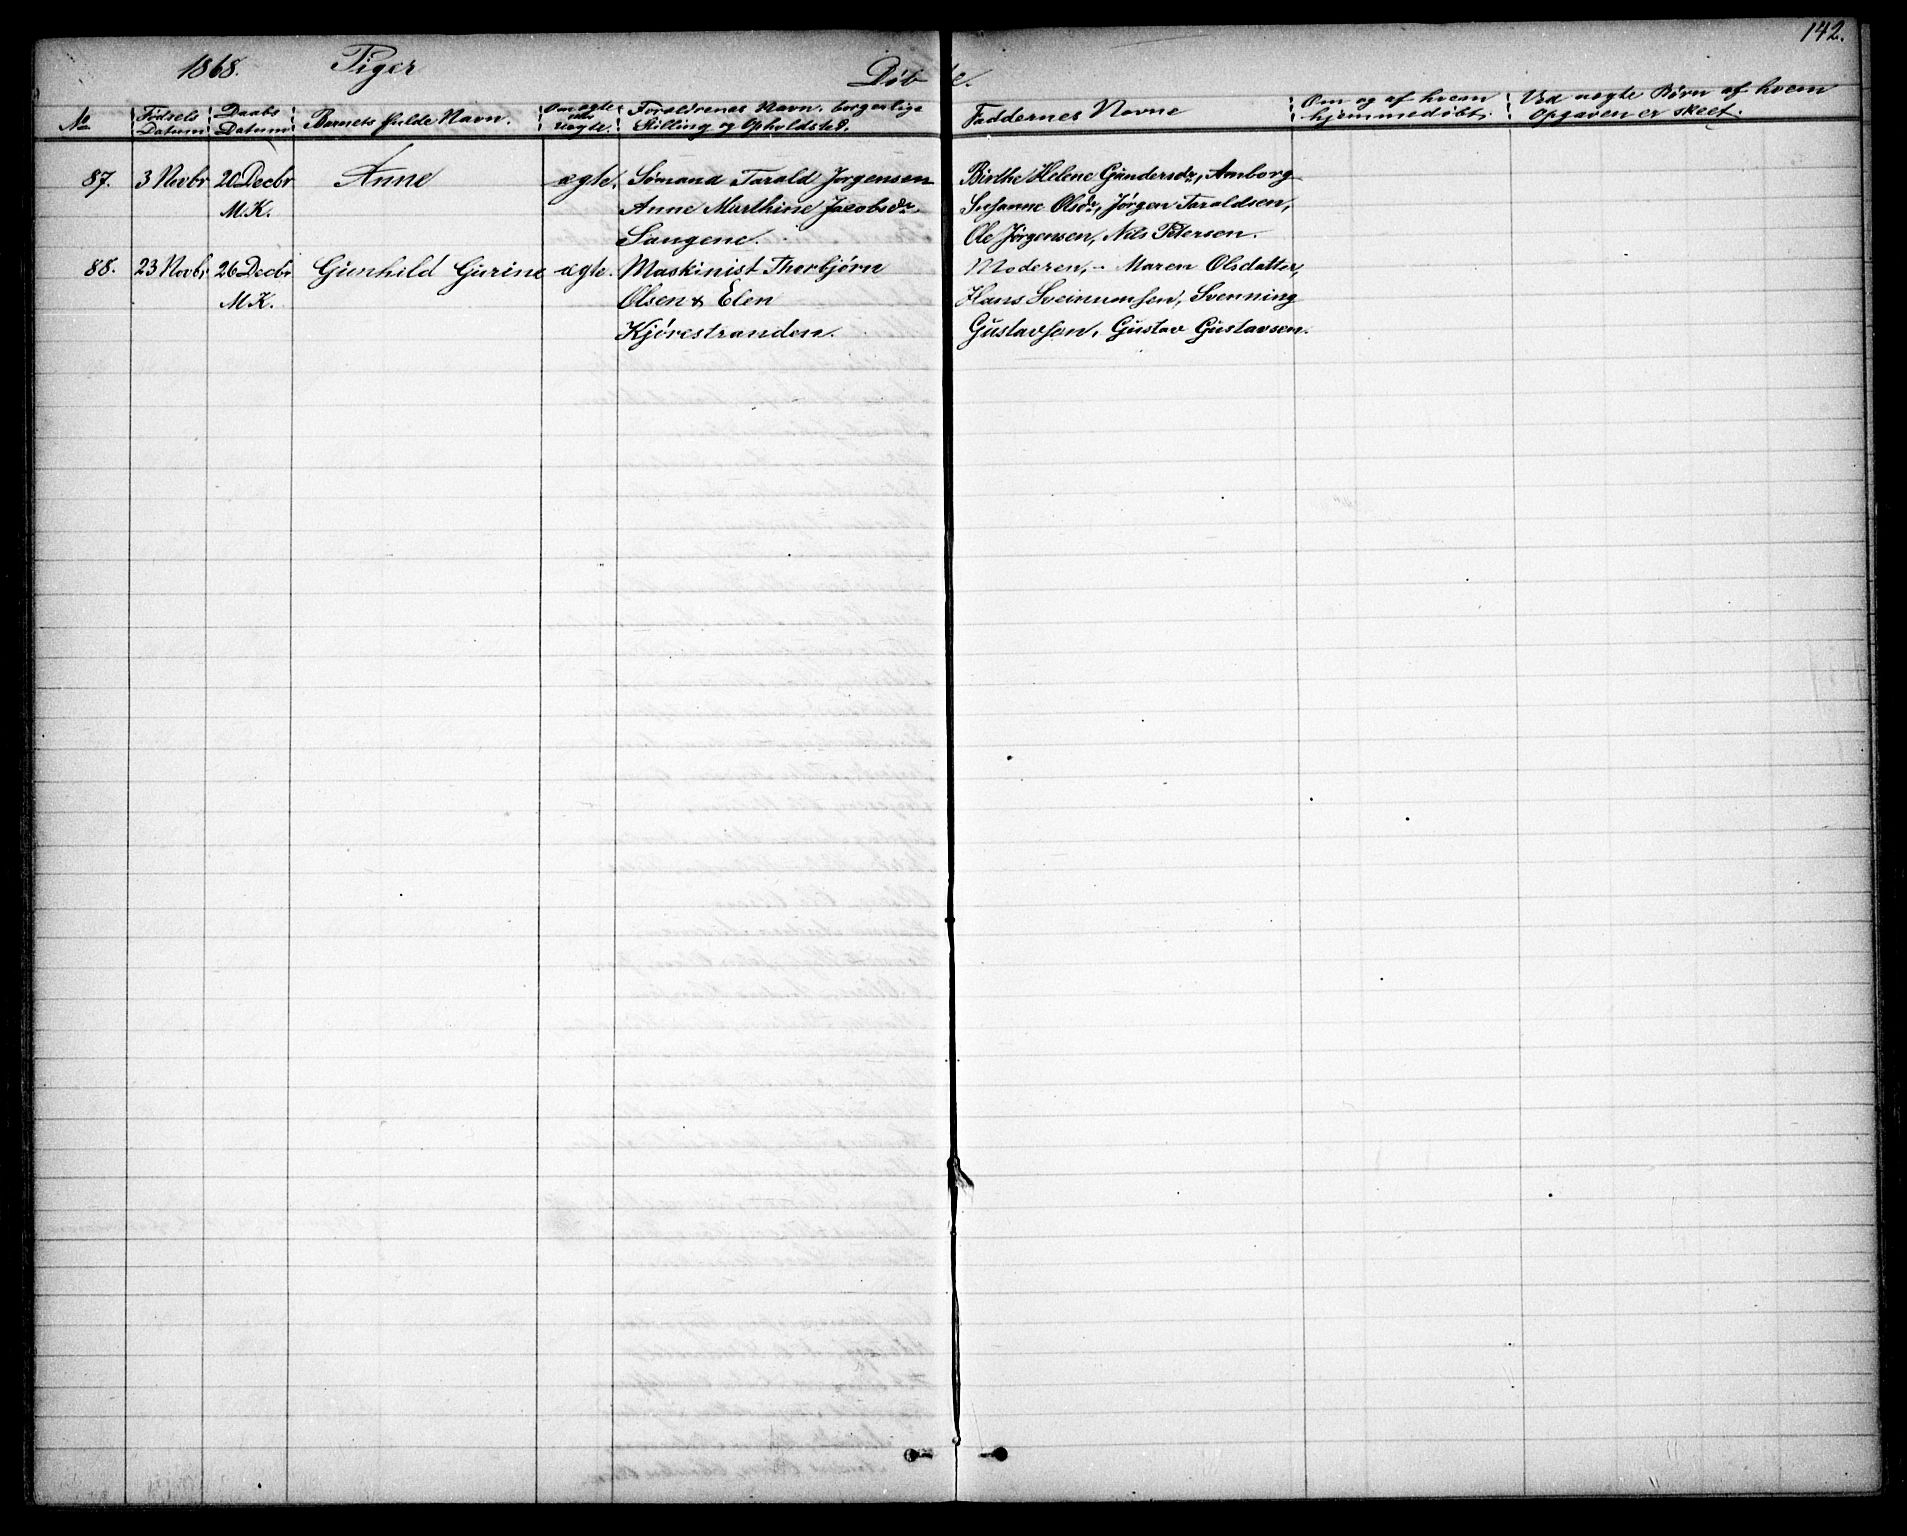 142.
1868. Piger Døbte.
No
Fødsels Datum
Daabs Datum
Barnets fulde Navn.
Om ægte eller uægte.
Forældrenes Navn, borgerlige Stilling og Opholdsted.
Faddernes Navne
Om og af hvem hjemmedøbt.
Ved uegte Børn af hvem Opgaven er skeet.
87. 3 Novbr 20 Decbr Anne ægte. Sömand Tarald Jørgensen Birthe Helene Gundersdr, Amborg
M.K. Anne Marthine Jacobsdr. Susanne Olsdr, Jørgen Taraldsen,
Sangene. Ole Jørgensen, Nils Petersen.
88. 23 Novbr 26 Decbr Gunhild Gurine ægte. Maskinist Thorbjørn Moderen, - Maren Olsdatter,
M.K. Olsen & Elen Hans Sveinumsen, Svenning
Kjørestranden. Gustavsen, Gustav Gustavsen.